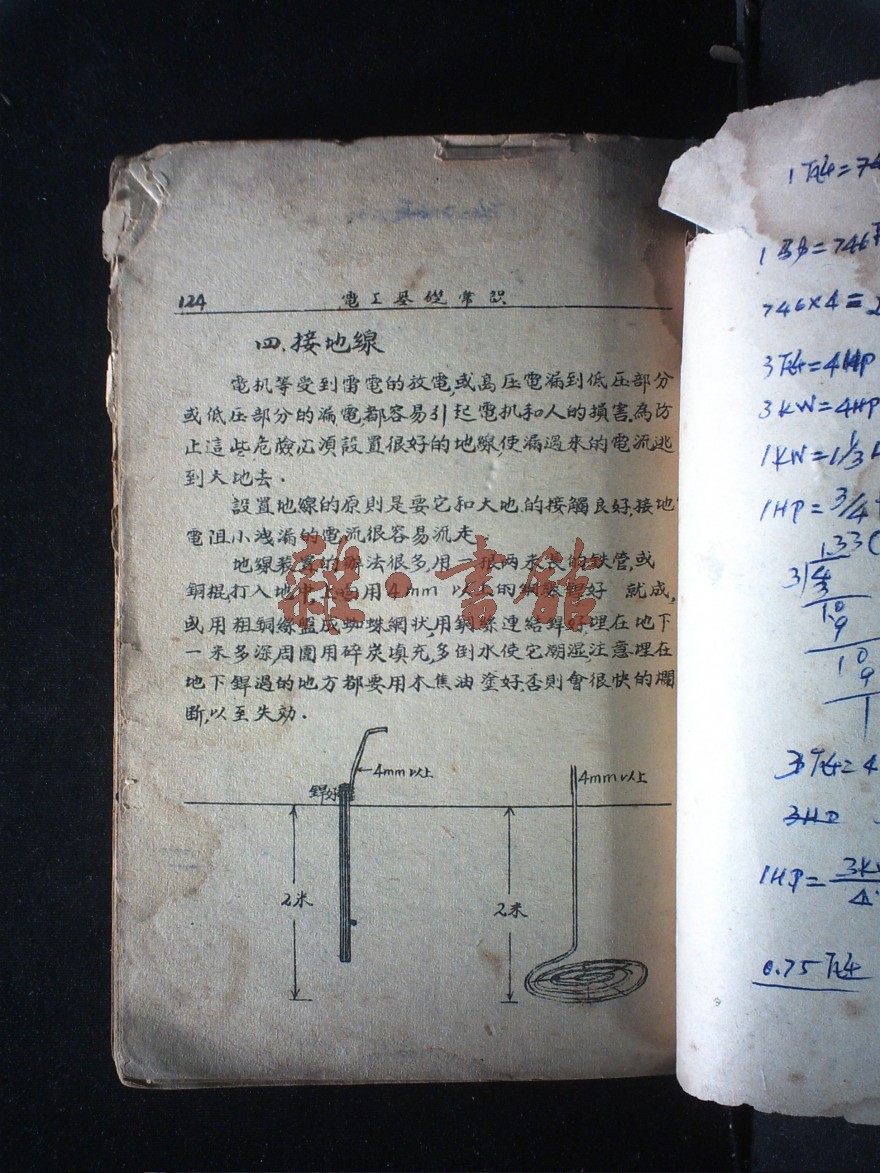 124
電工基礎常识
四.接地線
電机等受到雷電的放電,或高压電漏到低压部分
或低压部分的漏電,都容易引起電机和人的損害.為防
止這些危險必須設置很好的地線,使漏過來的電流逃
到大地去.
設置地線的原則是要它和大地的接觸良好,接地
電阻小洩漏的電流很容易流走
地線装置的辦法很多,用一根两米長的鉄管,或
銅棍打入地中,上面用4mm以上的銅線銲好 就成,
或用粗銅線盤成蜘蛛網状,用銅絲連結銲好,埋在地下
一米多深,周圍用碎炭填充,多倒水使它潮湿.注意埋在
地下銲過的地方都要用木焦油塗好,否則會很快的爛
断,以至失効.
4mm以上
銲好
2米
4mm以上
2米
雜·書館
1瓩=74
1馬力=746
746×4=
3瓩=4HP
3KW=4HP
1KW=1 1/3
1HP=3/4
1.33
3
10
9
10
9
1
3瓩=4
3HP
1HP=3KW/4
0.75瓩